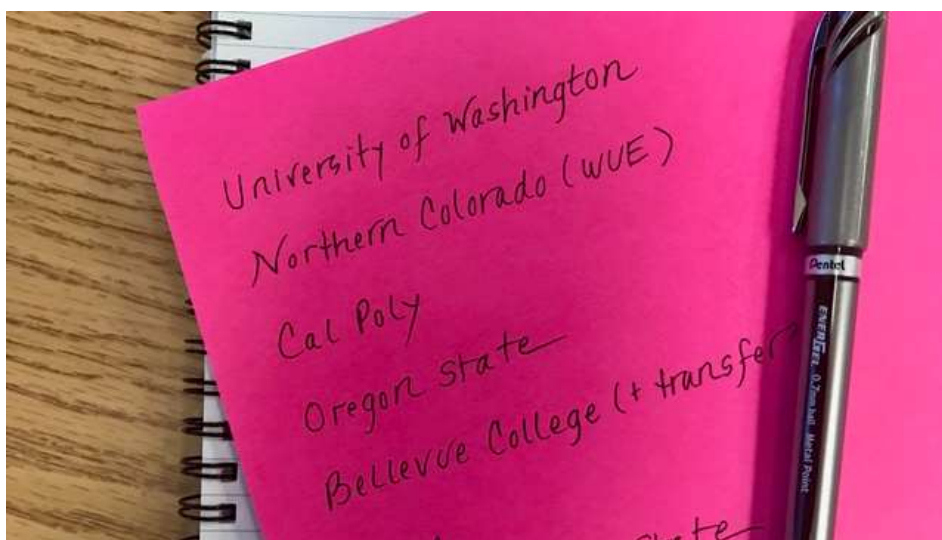 University of Washington
Northern Colorado (WUE)
Cal Poly
Oregon State
Bellevue College (+ transfer
State
Pentel
ENERGEL 0.7mm ball Metal Point